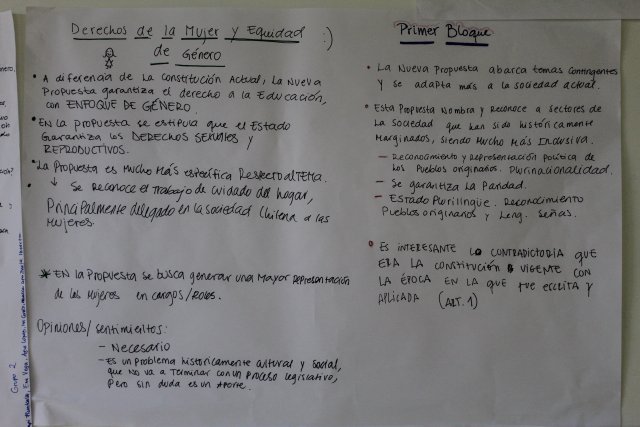 Derechos de la Mujer y Equidad
de Género
:)
• A diferencia de la constitución Actual, la Nueva
Propuesta garantiza el derecho a la Educación,
con ENFOQUE DE GÉNERO
• En la propuesta se estipula que el Estado
Garantiza los DERECHOS SEXUALES y
REPRODUCTIVOS.
• La Propuesta es Mucho Más específica Respecto al TEMA.
↳ Se Reconoce el Trabajo de cuidado del hogar,
Principalmente delegado en la sociedad Chilena a las
Mujeres.
* EN la Propuesta se busca generar una Mayor Representación
de las Mujeres en cargos/Roles.
Opiniones/sentimientos:
- Necesario
- Es un problema históricamente cultural y social,
que no va a Terminar con un Proceso legislativo,
Pero sin duda es un Aporte.
Primer Bloque
• La Nueva Propuesta abarca temas contingentes
y se adapta más a la sociedad actual.
• Esta Propuesta Nombra y Reconoce a sectores de
la sociedad que han sido históricamente
Marginados, siendo Mucho Más Inclusiva.
- Reconocimiento y Representación Política de
los Pueblos originarios. Plurinacionalidad.
- Se garantiza la Paridad.
- Estado Plurilingüe. Reconocimiento
Pueblos originarios y Leng. Señas.
• ES INTERESANTE LO CONTRADICTORIA QUE
ERA LA CONSTITUCIÓN VIGENTE CON
LA ÉPOCA EN LA QUE FUE ESCRITA Y
APLICADA (ART. 1)
Grupo 2